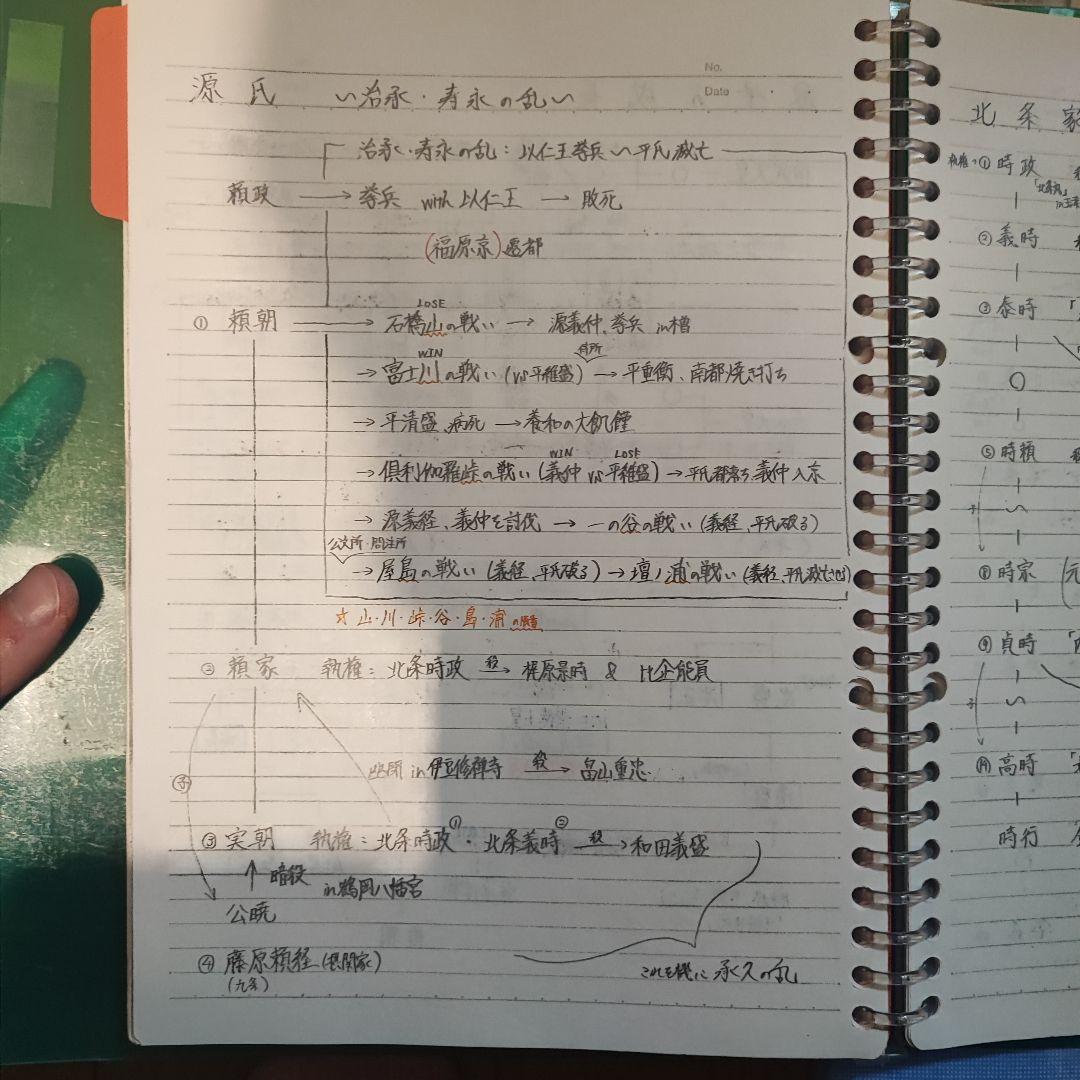 No.
Date
源 氏 〜治承・寿永の乱〜
治承・寿永の乱：以仁王挙兵〜平氏滅亡
頼政 → 挙兵 with 以仁王 → 敗死
(福原京)遷都
LOSE
① 頼朝 → 石橋山の戦い → 源義仲、挙兵 in 木曽
WIN 侍所
→ 富士川の戦い (vs 平維盛) → 平重衡、南都焼き打ち
→ 平清盛、病死 → 養和の大飢饉
WIN LOSE
→ 倶利伽羅峠の戦い (義仲 vs 平維盛) → 平氏都落ち、義仲入京
→ 源義経、義仲を討伐 → 一の谷の戦い (義経、平氏破る)
公文所・問注所
→ 屋島の戦い (義経、平氏破る) → 壇ノ浦の戦い (義経、平氏滅亡させる)
☆ 山・川・峠・谷・島・浦の順
② 頼家 執権：北条時政 殺→ 梶原景時 & 比企能員
子
幽閉 in 伊豆修禅寺 殺→ 畠山重忠
③ 実朝 執権：北条時政①・北条義時② 殺→ 和田義盛
↑ 暗殺 in 鶴岡八幡宮
公暁
④ 藤原頼経 (摂関家)
(九条)
これを機に 承久の乱
北 条 家
執権→① 時政
② 義時
③ 泰時
⑤ 時頼
子
⑧ 時宗 (元
⑨ 貞時
子
⑭ 高時
時行